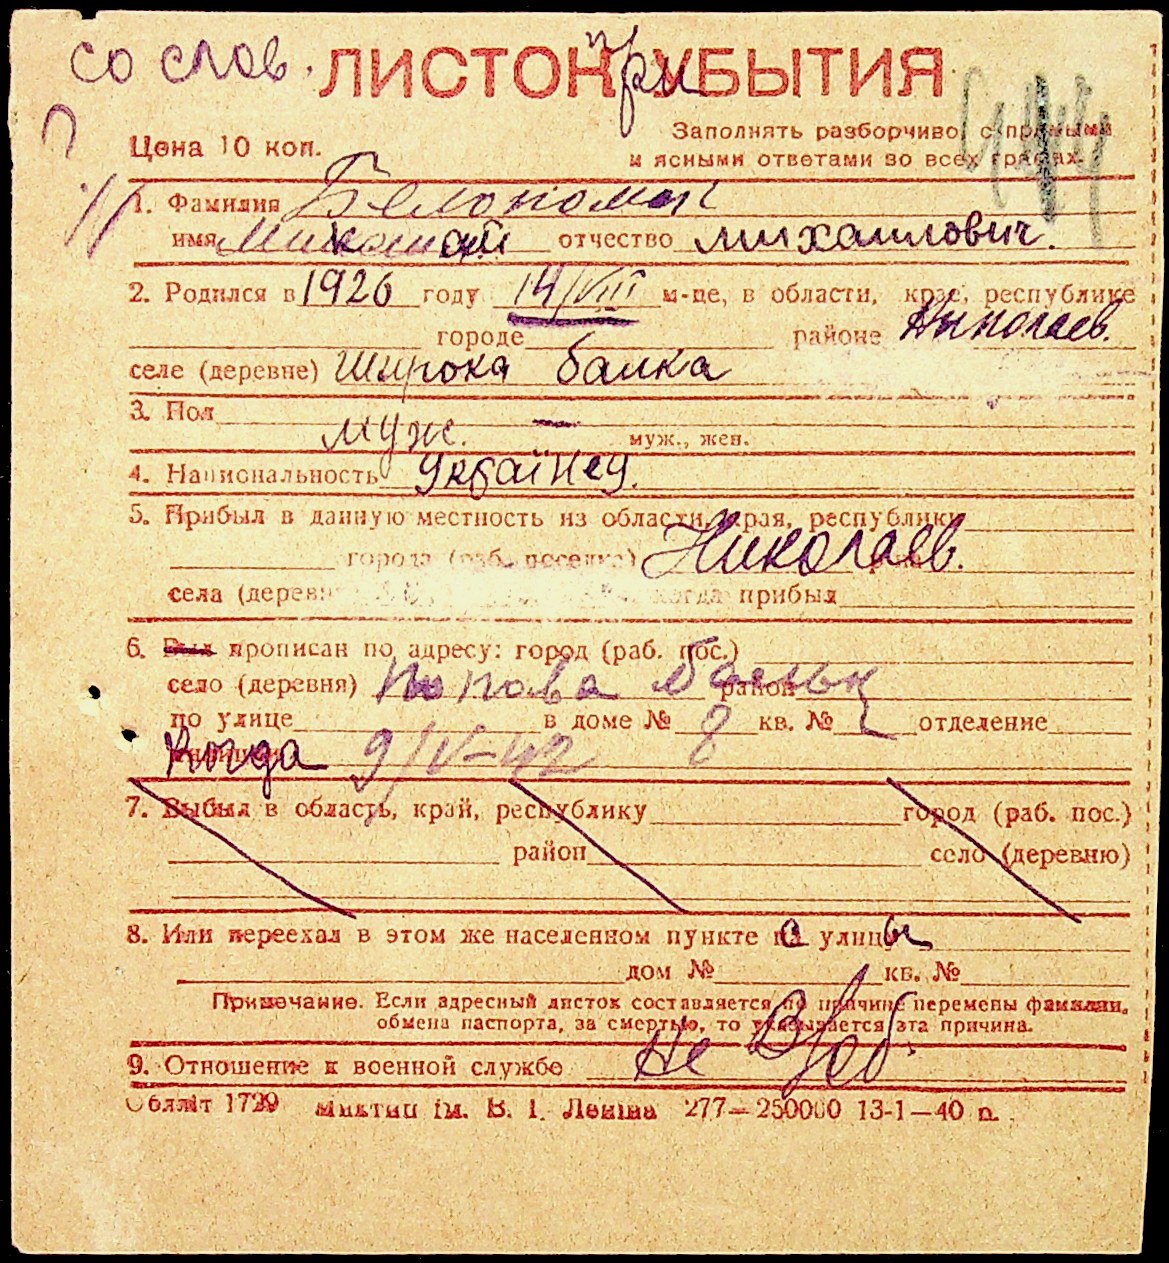 со слов. ЛИСТОК при УБЫТИЯ
Цена 10 коп.
Заполнять разборчиво с прямыми
и ясными ответами во всех графах.
1. Фамилия
имя Николай отчество михаилович.
2. Родился в 1926 году 14/VIII м-це, в области, крае, республике
городе районе Николаев.
селе (деревне) Широка балка
3. Пол муж. муж., жен.
4. Национальность Украйнец.
5. Прибыл в данную местность из области, края, республики
города (раб. поселка) Николаев.
села (деревни когда прибыл
6. Был прописан по адресу: город (раб. пос.)
село (деревня) Попова Бальк район
по улице в доме № 8 кв. № отделение
Когда 9/IV-42
7. Выбыл в область, край, республику город (раб. пос.)
район село (деревню)
8. Или переехал в этом же населенном пункте с улицы
дом № кв. №
Примечание. Если адресный листок составляется по причине перемены фамилии,
обмена паспорта, за смертью, то указывается эта причина.
9. Отношение к военной службе не В/об.
Обллит 1729 Миктип ім. В. І. Леніна 277—250000 13-1—40 р.